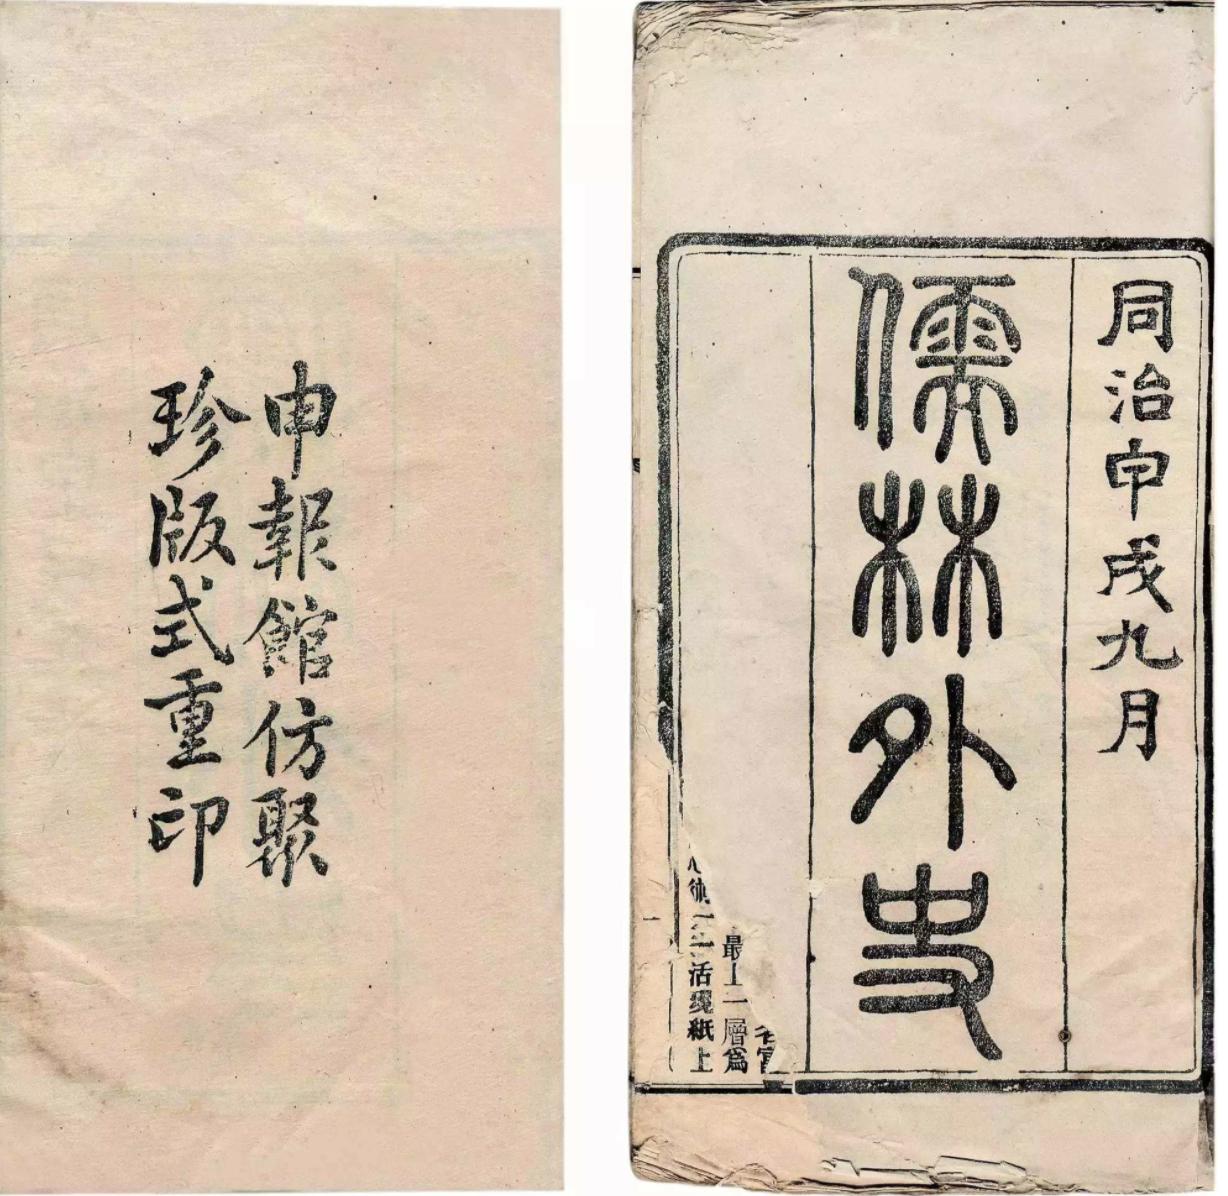 同治甲戌九月
儒林外史
最上一層爲
一一活現紙上
申報館仿聚
珍版式重印